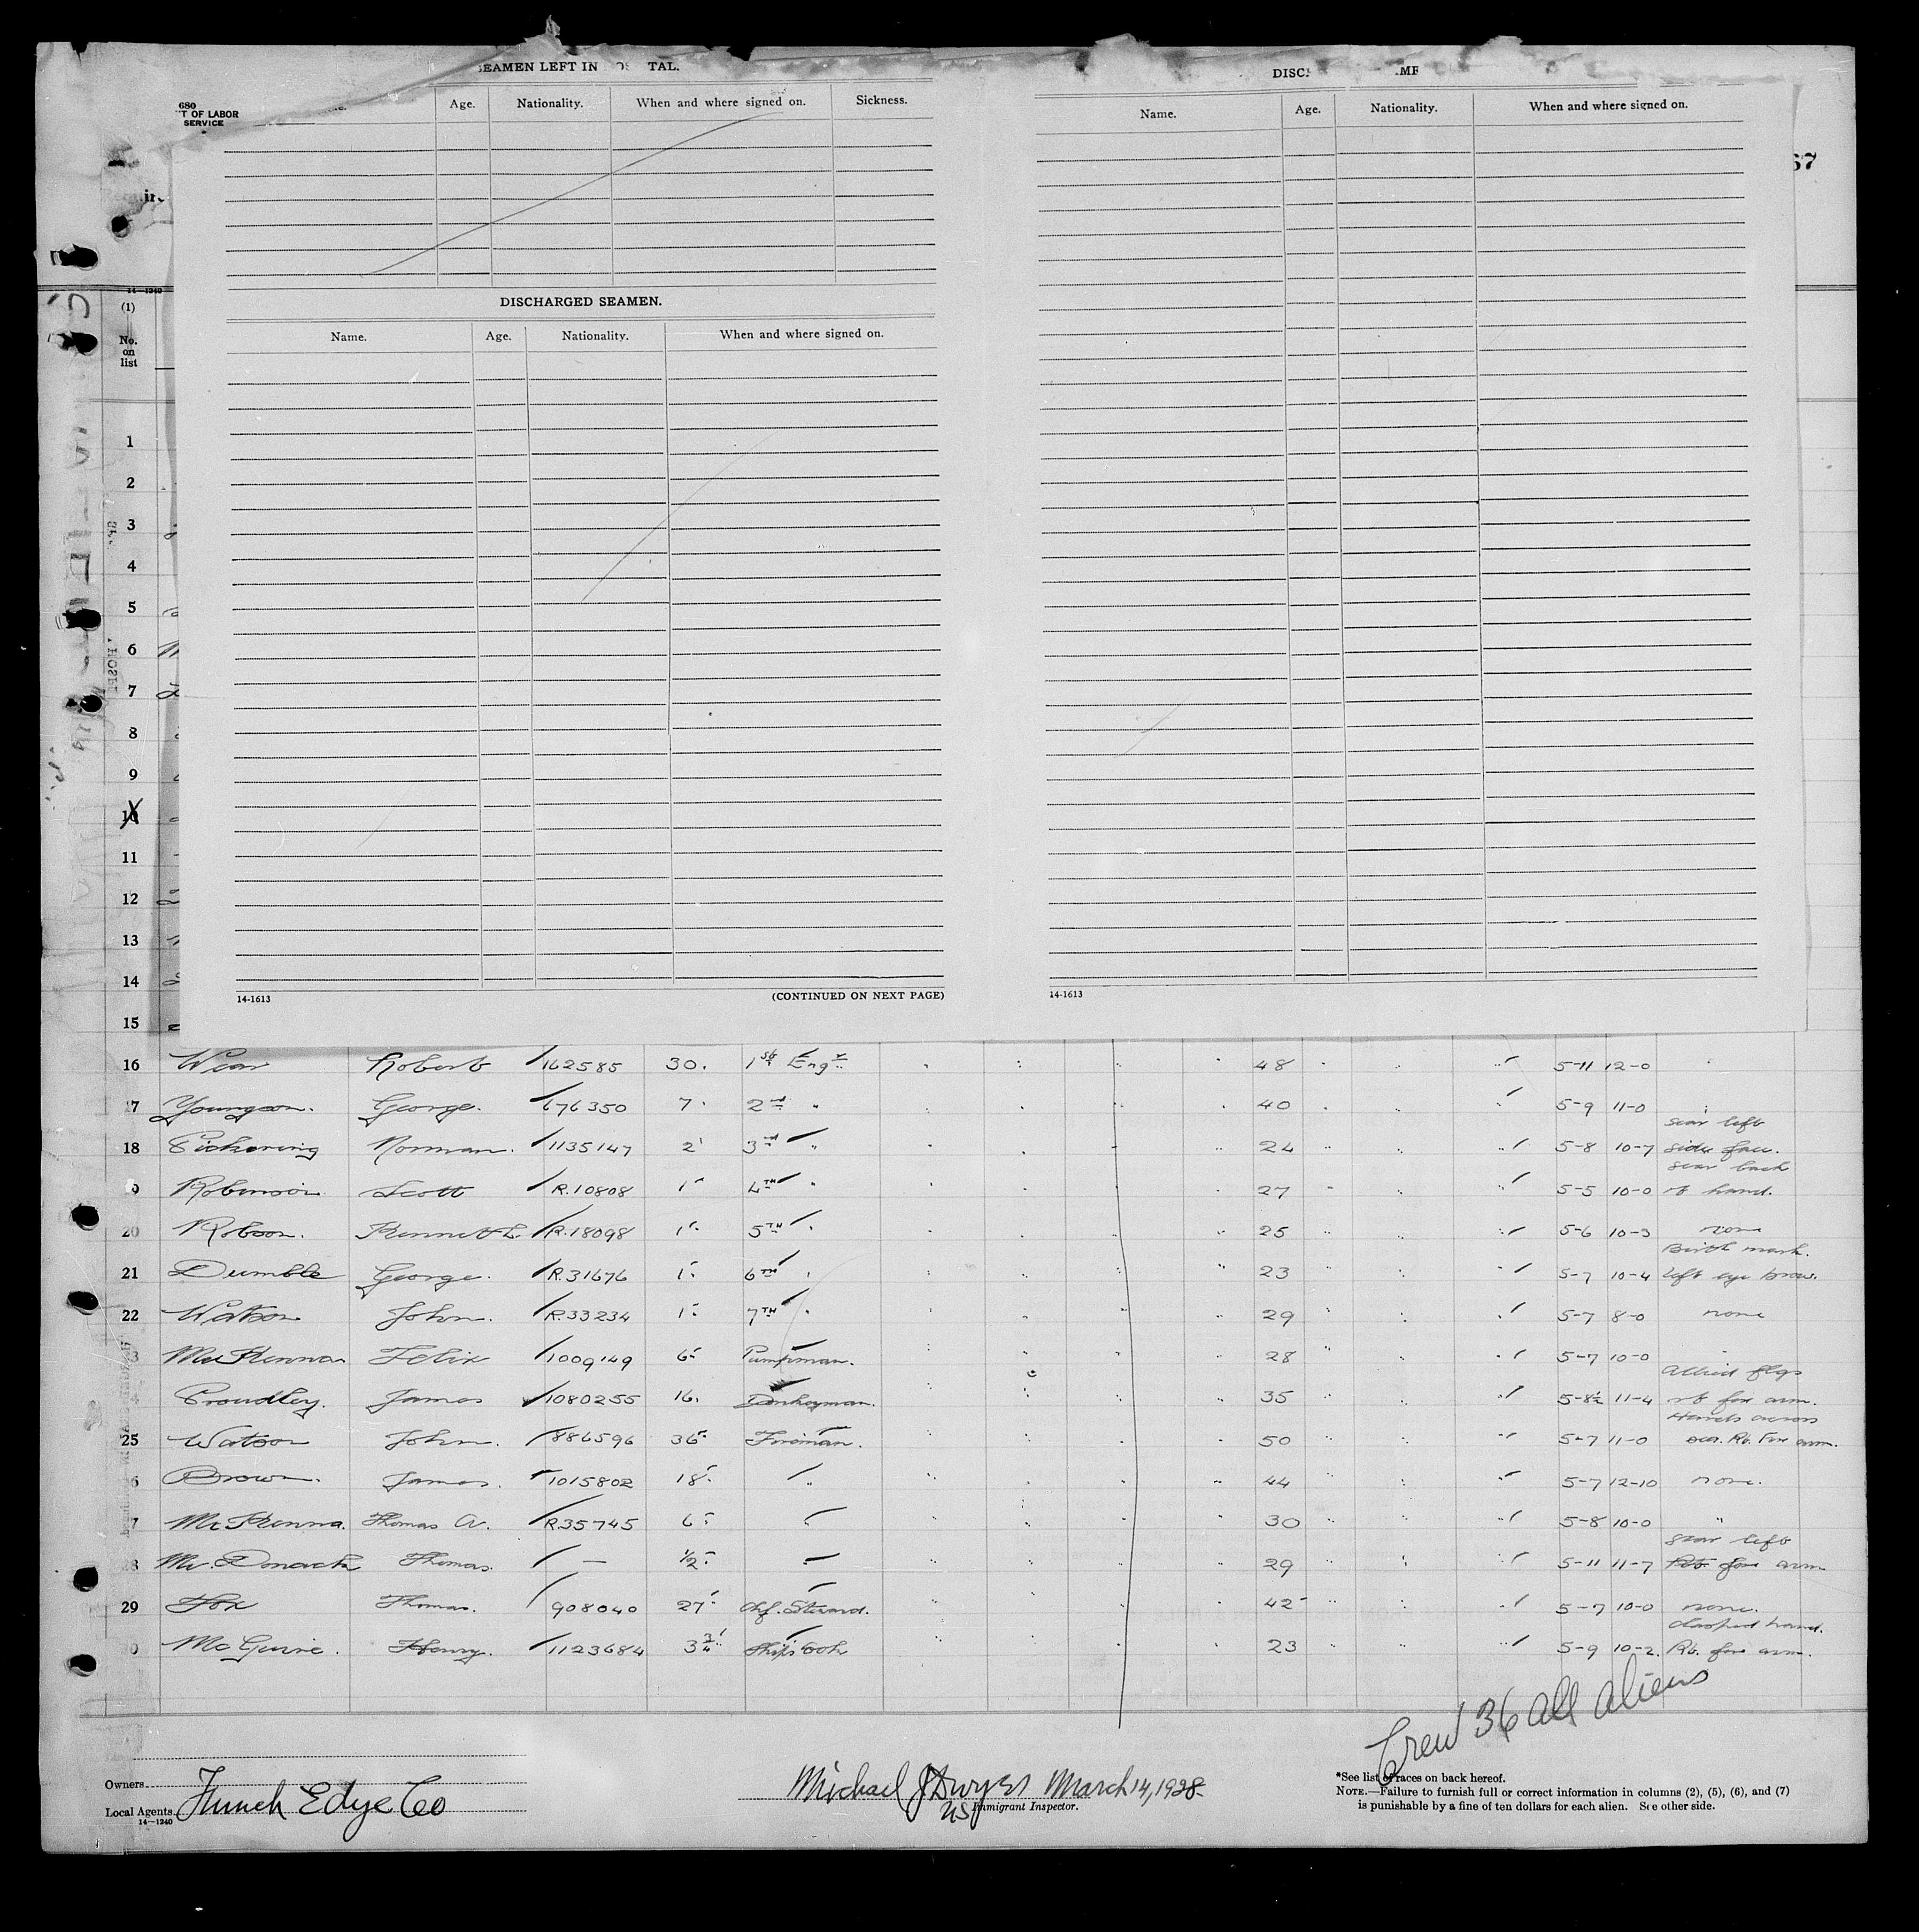 SEAMEN LEFT IN
680
T OF LABOR
SERVICE
Age. Nationality. When and where signed on. Sickness.
Name. Age. Nationality. When and where signed on.
67
DISCHARGED SEAMEN.
Name. Age. Nationality. When and where signed on.
14-1240
(1)
No.
on
list
1
2
3
4
5
6
7
8
9
10
11
12
13
14
15
14-1613 (CONTINUED ON NEXT PAGE) 14-1613
16 Wear Robert 162585 30. 1st Engr 48 5-11 12-0
17 Youngson. George. 676350 7 2nd " 40 5-9 11-0
scar left
18 Pickering Norman. 1135147 2 3rd " 24 5-8 10-7 side face.
scar back
9 Robinson Scott R.10808 1 4TH " 27 5-5 10-0 rt hand.
20 Robson. Kenneth L. R.18098 1 5TH " 25 5-6 10-3 none
Birth mark.
21 Dumble George. R.31676 1 6TH " 23 5-7 10-4 left eye brow.
22 Watson John. R.33234 1 7TH " 29 5-7 8-0 none
3 McKenna Felix 1009149 6 Pumpman. 28 5-7 10-0 "
Allied flgs
4 Proudley. James 1080255 16. Donkeyman. 35 5-8½ 11-4 rt for arm.
Hands across
25 Watson John. 886596 36 Fireman. 50 5-7 11-0 sea. Rt. For arm.
6 Brown. James. 1015802 18 " 44 5-7 12-10 none.
7 McKenna. Thomas A. R.35745 6 " 30 5-8 10-0 "
scar left
28 Mc. Donack Thomas. — ½ 29 5-11 11-7 for arm
29 Fox Thomas. 908040 27 Chf. Steward. 42 5-7 10-0 none.
clasped hand.
0 McGuire. Henry. 1123684 3¾ Ships Cook 23 5-9 10-2. Rt. for arm.
Crew 36 all aliens
Owners
Local Agents Funch Edye Co
14-1240
Michael J Dwyer March 14, 1928
US Immigrant Inspector.
*See list of races on back hereof.
NOTE.—Failure to furnish full or correct information in columns (2), (5), (6), and (7)
is punishable by a fine of ten dollars for each alien. See other side.